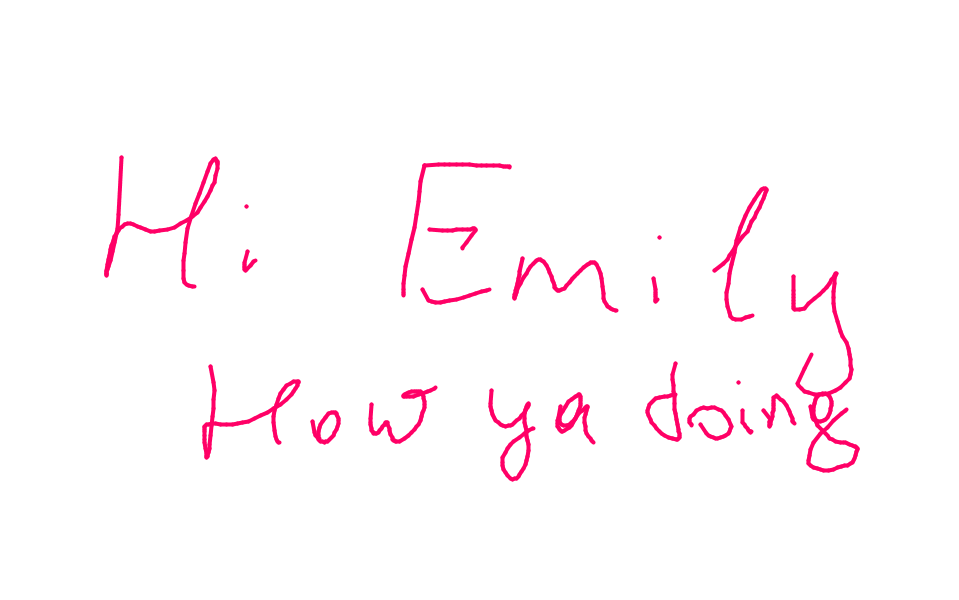 Hi Emily
How ya doing